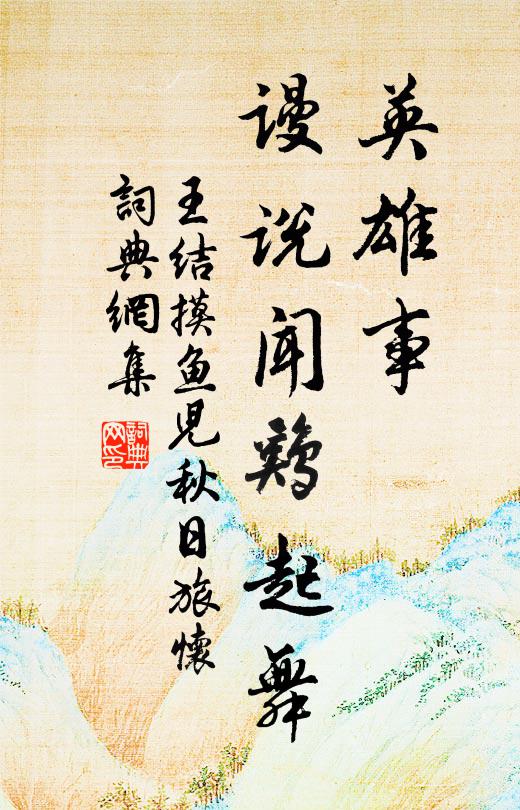 英雄事
谩说闻鸡起舞
王结摸鱼儿秋日旅怀
詞典網集
詞典
网印